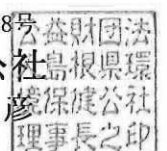 8号
社
彦
公益財団法
島根県環
保健公社
理事長之印